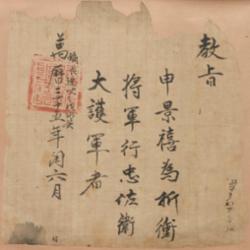 敎旨
申景禧為折衝
將軍行忠佐衛
大護軍者
萬曆三十五年閏六月 日